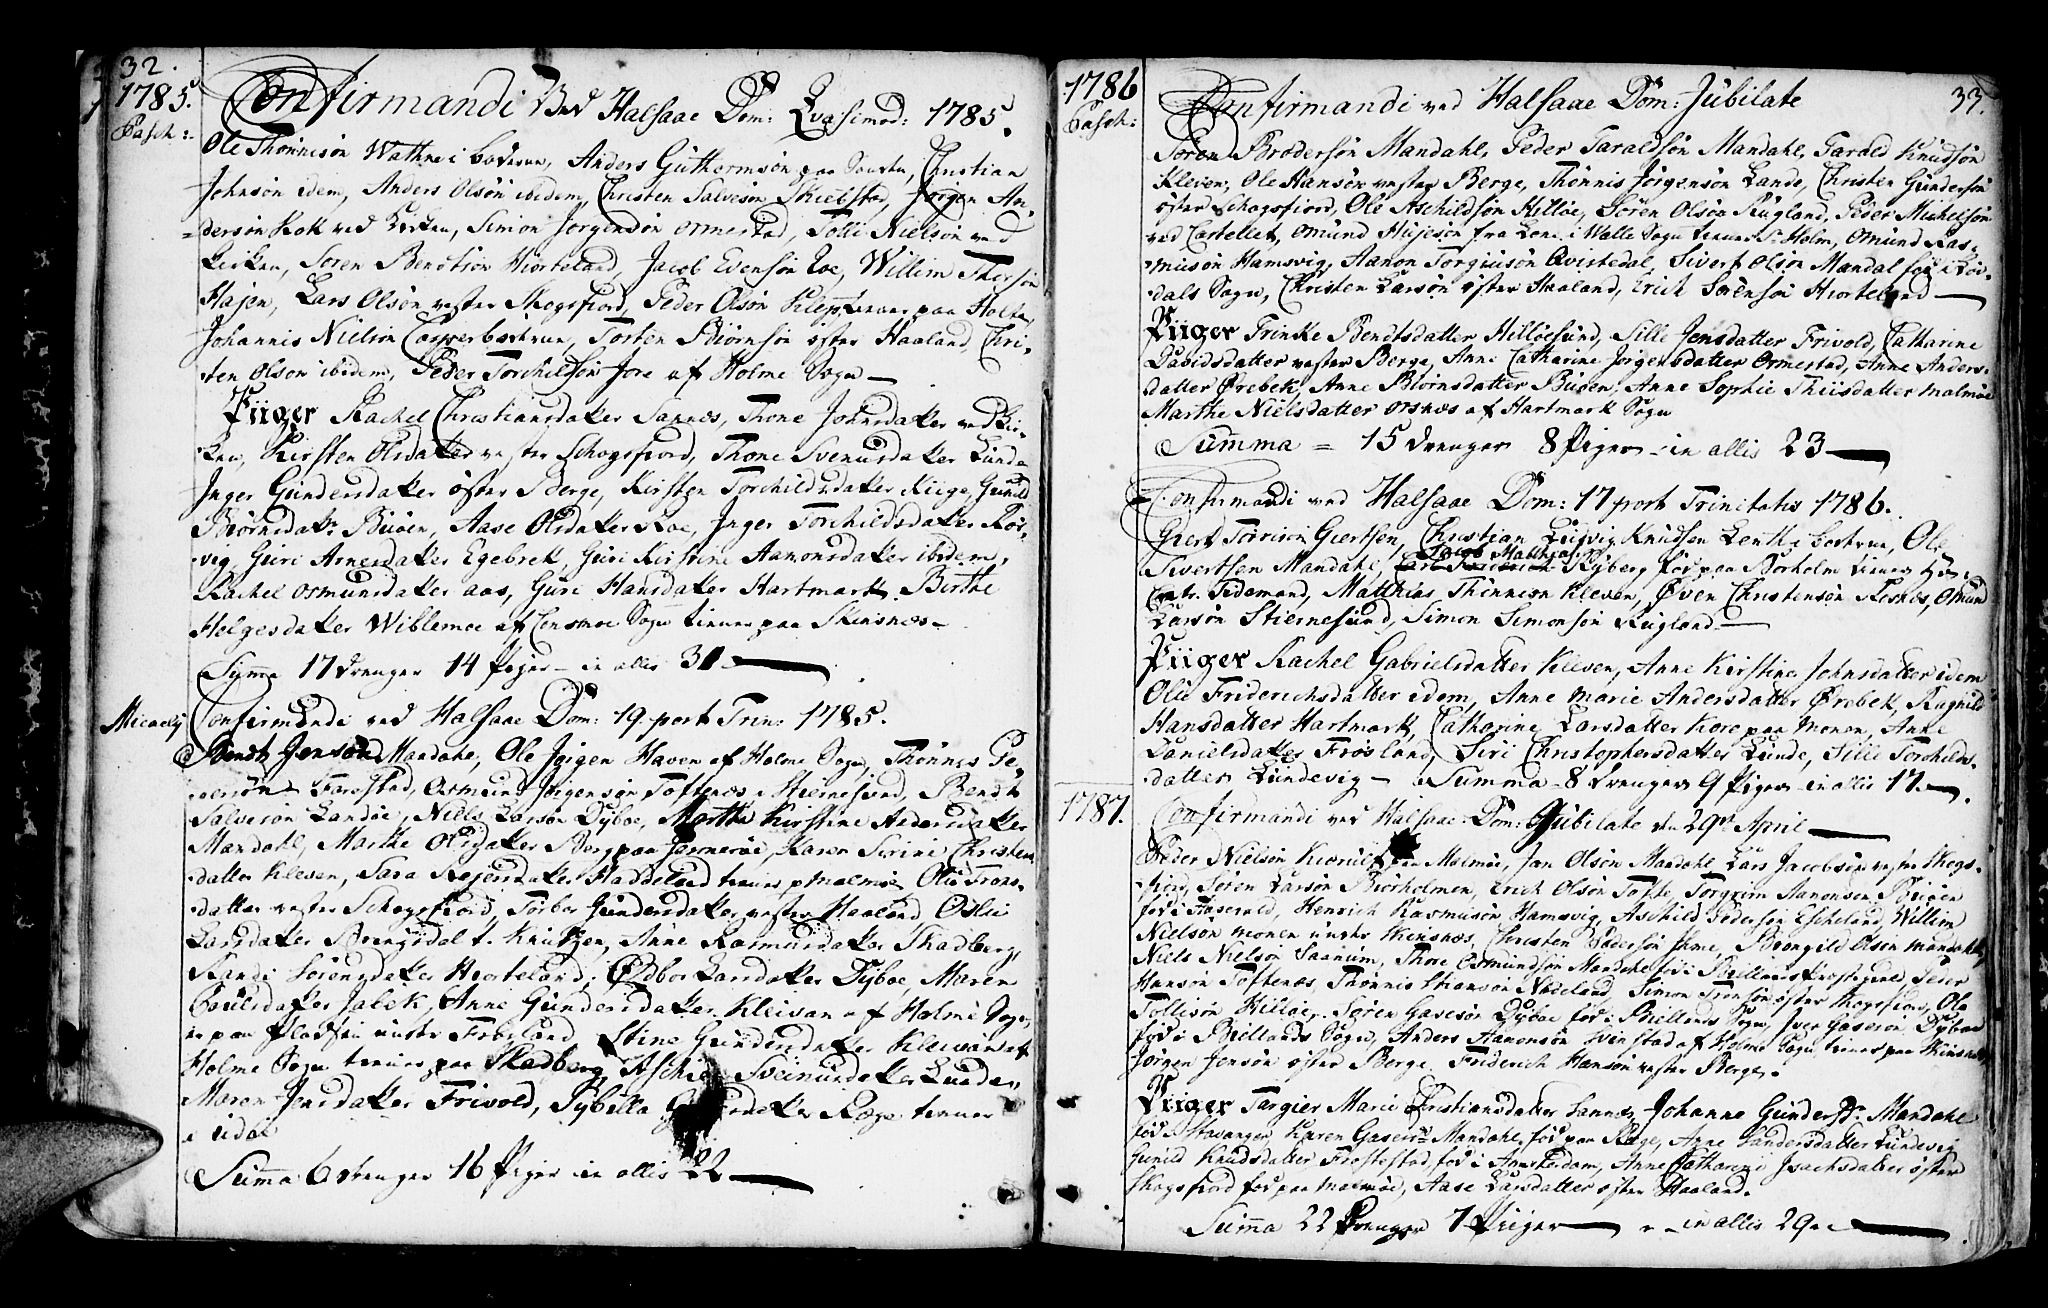 32.
1785.
Pasch:
Confirmandi Ved Halsaae Dom: Qvasimod: 1785.
Ole Thønnisøn Wathne i baderun, Anders Guthormsøn paa Tousten, Christian
Johnsøn idem, Anders Olsøn ibidem, Christen Salvesøn Skiebstad, Jørgen An-
=dersøn Kok ved Kirken, Simon Jørgensøn Ormestad, Tolli Nielsøn ved
Kirken, Søren Bendtsøn Hiorteland, Jacob Evensøn Roe, Willim Thorsøn
Hajen, Lars Olsøn vester Skogsfiord, Peder Olsøn Klep tener paa Holte,
Johannis Nielsøn Casperbostrun, Torsten Biørnsøn øster Haaland, Chri-
sten Olsøn ibidem, Peder Torchildsøn Jore af Holme Sogn
Piiger Rachel Christiansdatter Sannes, Thone Johnsdatter ved Kir-
ken, Kirsten Olsdatter vester Schogsfiord, Thone Svenusdatter Lunde
Inger Gundersdatter øster Berge, Kirsten Torchildsdatter Kiige, Gunild
Biørnsdatr Buøen, Aase Olsdatter Roe, Inger Torchildsdatter Ros-
vig, Guri Arnesdatter Egebek, Guri Kirstine Aanonsdatter ibidem,
Rachel Osmunsdatter Aas, Guri Hansdatter Hartmark, Birthe
Helgesdatter Wiblemoe af Consmoe Sogn tiener paa Skinsnes
Summa 17 Drenger 14 Piger in allis 31
Micaely
Confirmandi ved Halsaae Dom: 19. post Trin: 1785.
Bendt Jensøn Mandahl, Ole Jørgen Haven af Holme Sogn, Thønnes Pe-
dersøn Farestad, Osmund Jørgensøn Toftenes i Stiernesund, Bendt
Salvesøn Landøe, Niels Larsøn Dyboe, Marthe Kirstine Andersdatter
Mandahl, Marthe Olsdatter Borg paa Jornerøe, Karen Serine Christens
datter Kleven, Sara Rejersdatter Haddeland tiener p Malmøe, Olie Trons-
datter vester Schogsfiord, Torbor Gundersdatter vester Haaland, Oslie
Larsdatter Brengsdal t. Knibgen, Anne Rasmusdatter Skadberg,
Randi Sørensdatter Hiorteland, Oddbor Larsdatter Dyboe, Maren
Poulsdatter Jabek, Anne Gundersdatter Kleivan af Holme Sogn,
er paa Pladsen under Frøisland, Stine Gundersdatter Kleivan af
Holme Sogn tiener paa Skadberg, Aschier Sveinundatter Lunde,
Maren Jensdatter Frivold, Sybilla datter Rage tiener
i
Summa 6 drenger 16 Piger in allis 22
1786
Pasch:
33.
Confirmandi ved Halsaae Dom: Jubilate
Søren Brodersøn Mandahl, Peder Taraldsøn Mandahl, Tarald Knudsøn
Kleven, Ole Hansøn vester Berge, Thønnis Jørgensøn Lande, Christen Gundersøn
øster Schogsfiord, Ole Aschildsøn Hilløe, Søren Olsøn Rugland, Peder Michelsøn
ved Castellet, Omund Hujesøn fra Lone i Walle Sogn tiener Sr Holm, Omund Ras-
musøn Hamsvig, Aanon Torgiusøn Qvistedal, Sivert Olsøn Mandal fød i Løv-
dals Sogn, Christen Larsøn øster Haaland, Erich Sørensøn Hiorteland
Piiger Trinke Bendtsdatter Hilløesund, Sille Jensdatter Frivold, Catharine
Davidsdatter vester Berge, Anne Catharine Jørgensdatter Ormestad, Anne Anders-
datter Ørebek, Anne Biørnsdatter Buøen, Anne Sophie Thiisdatter Malmøe
Marthe Nielsdatter Orsnes af Hartmark Sogn
Summa = 15 Drenger 8 Piger in allis 23
Confirmandi ved Halsaae Dom: 17 post Trinitatis 1786.
Giert Torrison Giertsen, Christian Ludvig Knudsen Lenth bostrun, Ole
Sivertsen Mandahl, Jacob Matthias Ryberg fød paa Borholm tiener Hr
Capt. Tidemand, Matthias Thønnison Kleven, Øven Christensøn Rosnes, Omund
Larsøn Stiernesund, Simon Simonsøn Rugland
Piiger Rachel Gabrielsdatter Kleven, Anne Kirstine Johnsdatter idem
Olie Friderichsdatter idem, Anne Marie Andersdatter Ørebek, Ragnild
Hansdatter Hartmark, Catharine Larsdatter Kore paa Monen, Anne
Danielsdatter Frøsland, Siri Christophersdatter Lunde, Sille Torchilds-
datter Lundevig Summa 8 Drenger 9 Piger in allis 17.
1787.
Confirmandi ved Halsaae Dom: Jubilate den 29de April
Peder Nielsøn Kierulf paa Malmøe, Jan Olsøn Mandahl, Lars Jacobsøn vester Skogs-
fiord, Søren Larsøn Biørholmen, Erich Olsøn Tofte, Torgrim Aanonsen Buøen
fød i Aaserald, Henrich Rasmusøn Hamsvig, Aschild Pedersøn Eskeland, Willim
Nielsøn Monen under Skinsnes, Christen Pedersøn Ihme, Brongild Olsøn Mandahl,
Niels Nielsøn Saanum, Thore Osmundsøn Mandahl fød i Bellands Prostegield, Peder
Hansøn Toftenes, Thønnis Hansøn Nodeland, Simon Tronsøn øster Skogsfiord, Ole
Tollisøn Hilløe, Søren Gavesøn Dyboe fød i Biellands Sogn, Iver Gavesøn Dyboe
fød i Biellands Sogn, Anders Aanonsøn Svinstad af Holme Sogn, tiener paa Skinsnes
Jørgen Jensøn øster Berge, Friderich Hansøn vester Berge.
Piiger Targier Marie Christiansdatter Sannes, Johanne Gunders D. Mandahl
fød i Stavanger, Karen Gasesdr Mandahl, fød paa Rage, Anne Sandersdatter Lundevig
Gunild Knudsdatter Frostestad, fød i Amsterdam, Anne Catharine Isachsdatter øster
Skogsfiord fød paa Malmøe, Aase Larsdatter øster Haaland.
Summa 22 Drenger 7 Piiger in allis 29